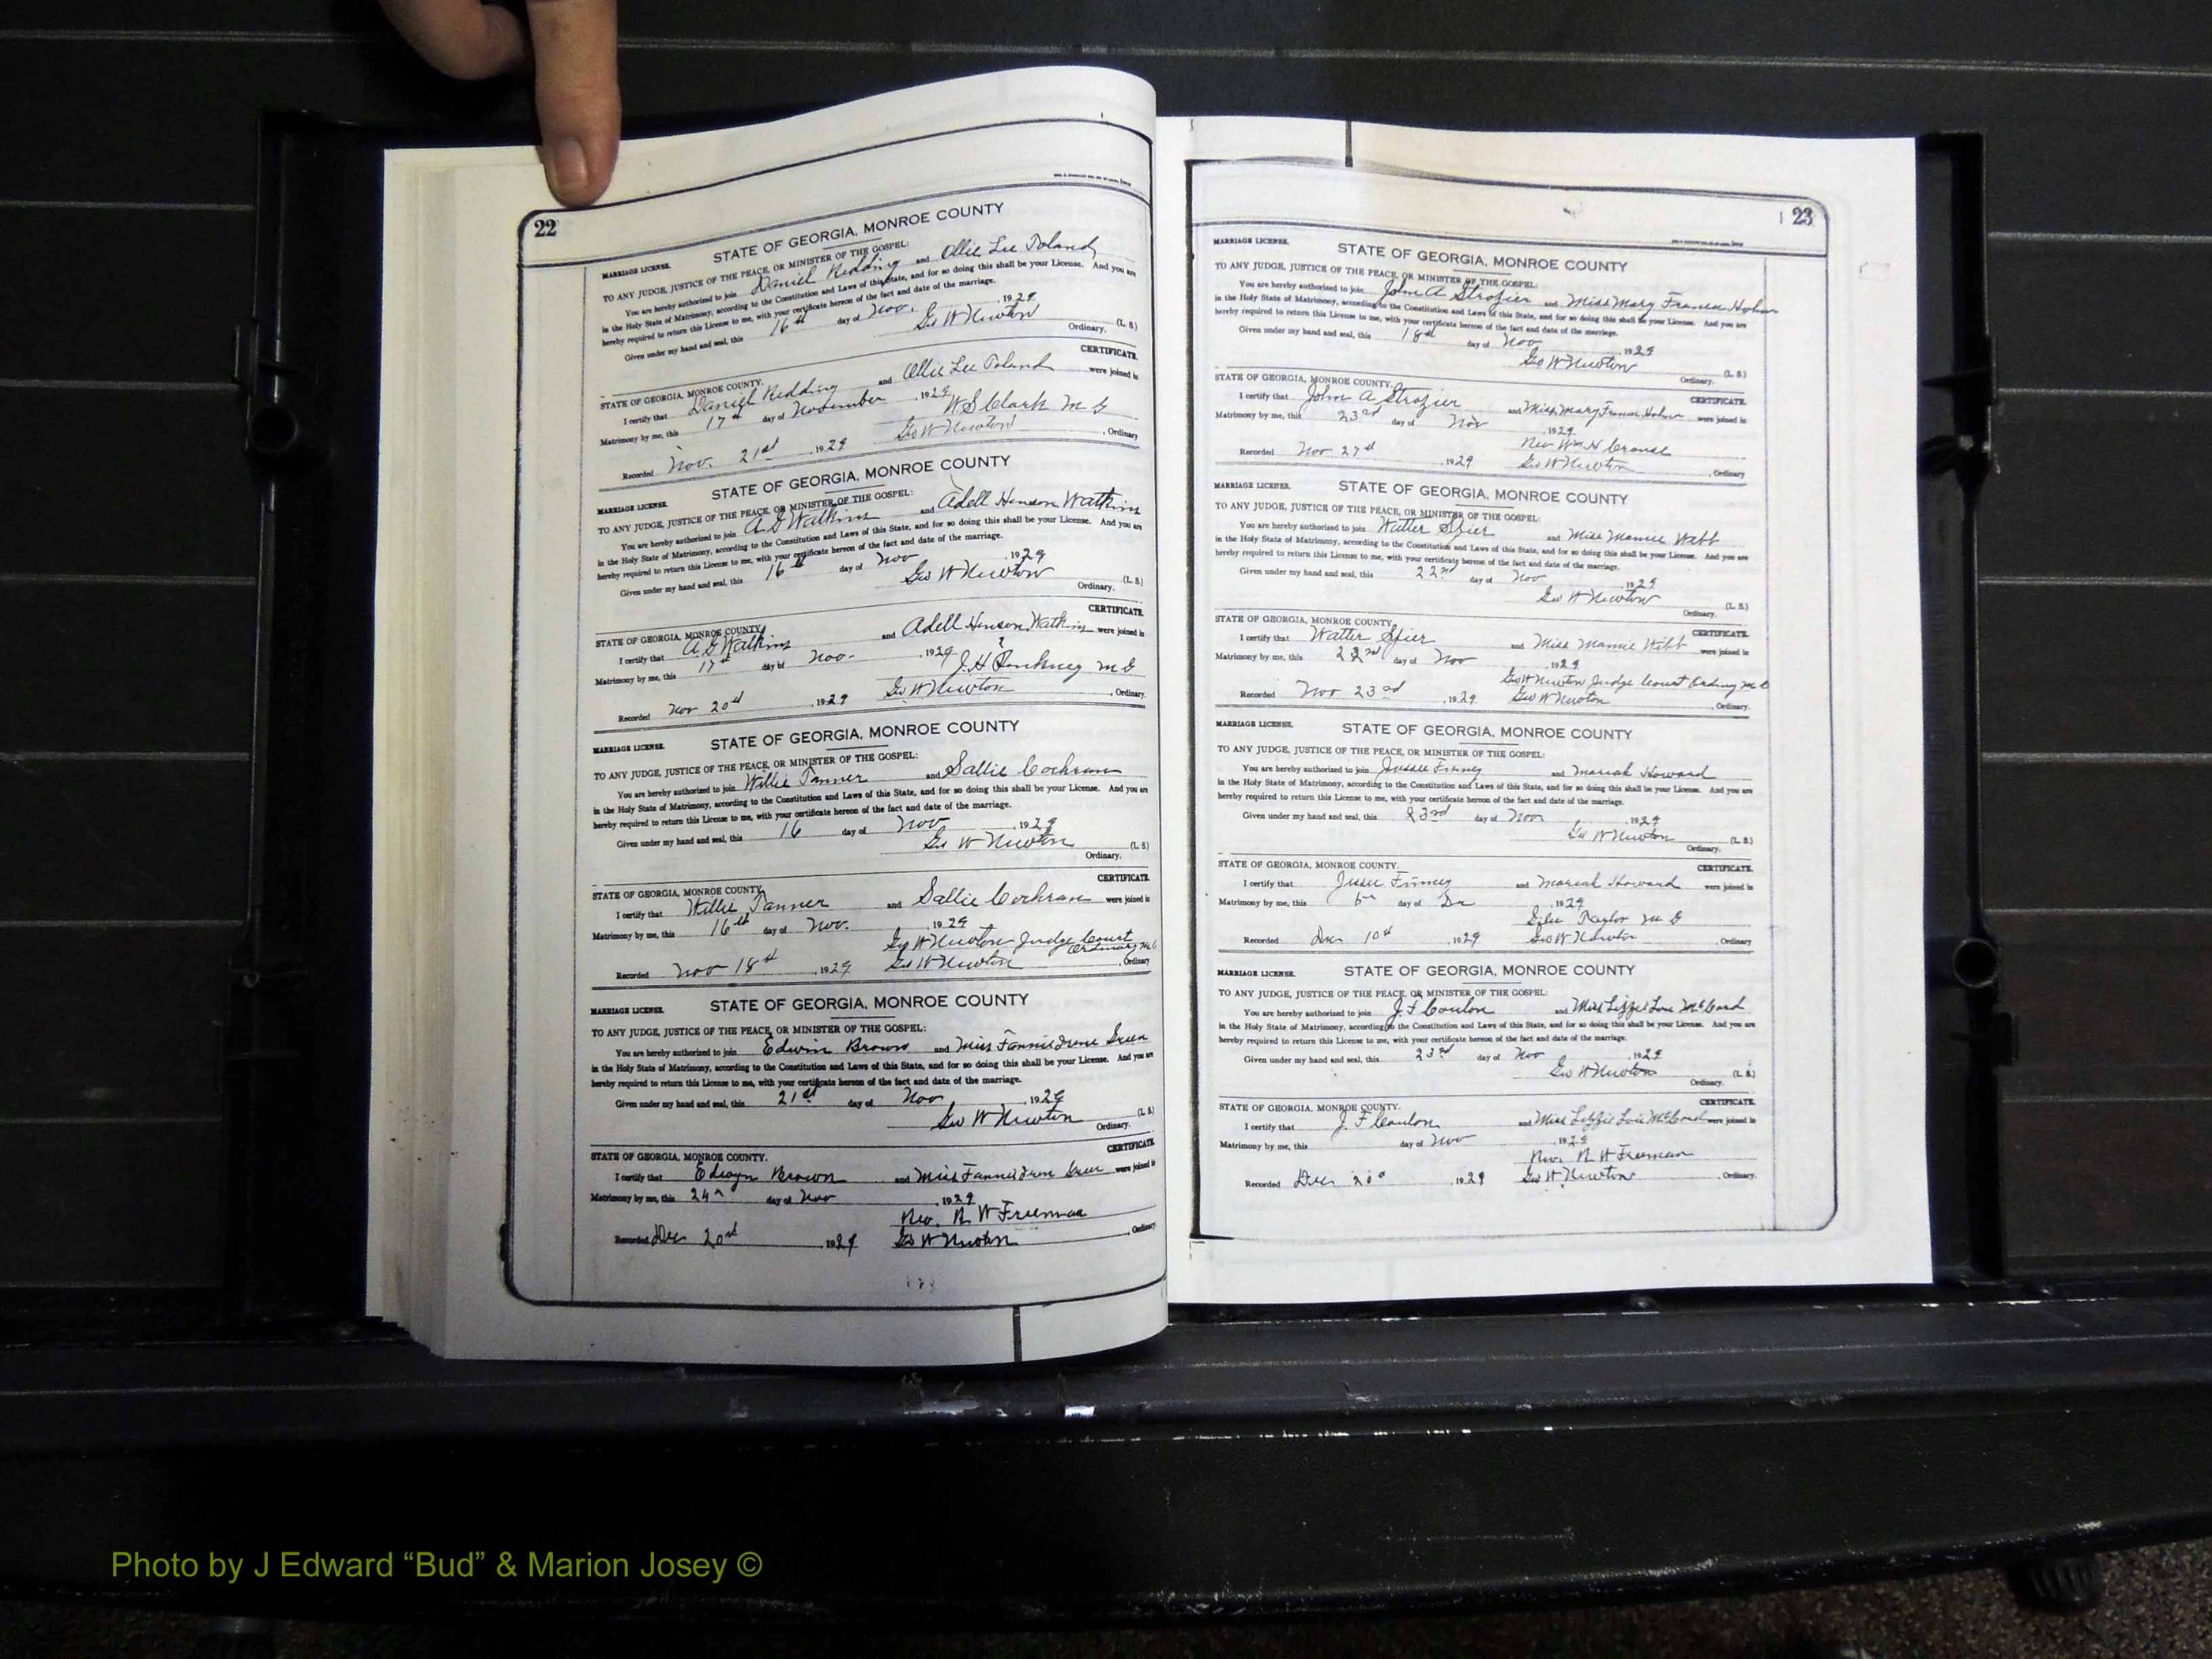 22
MARRIAGE LICENSE. STATE OF GEORGIA, MONROE COUNTY
TO ANY JUDGE, JUSTICE OF THE PEACE, OR MINISTER OF THE GOSPEL:
You are hereby authorized to join Daniel Redding and Ollie Lee Toland
in the Holy State of Matrimony, according to the Constitution and Laws of this State, and for so doing this shall be your License. And you are
hereby required to return this License to me, with your certificate hereon of the fact and date of the marriage.
Given under my hand and seal, this 16th day of Nov. , 1929
Geo W Newton (L. S.)
Ordinary.
CERTIFICATE.
STATE OF GEORGIA, MONROE COUNTY.
I certify that Daniel Redding and Ollie Lee Toland were joined in
Matrimony by me, this 17th day of November , 1929
W S Clark M G
Recorded Nov. 21st , 1929 Geo W Newton , Ordinary
MARRIAGE LICENSE. STATE OF GEORGIA, MONROE COUNTY
TO ANY JUDGE, JUSTICE OF THE PEACE, OR MINISTER OF THE GOSPEL:
You are hereby authorized to join A G Watkins and Adell Henson Watkins
in the Holy State of Matrimony, according to the Constitution and Laws of this State, and for so doing this shall be your License. And you are
hereby required to return this License to me, with your certificate hereon of the fact and date of the marriage.
Given under my hand and seal, this 16th day of Nov , 1929
Geo W Newton (L. S.)
Ordinary.
CERTIFICATE.
STATE OF GEORGIA, MONROE COUNTY.
I certify that A G Watkins and Adell Henson Watkins were joined in
Matrimony by me, this 17th day of Nov. , 1929
J. H. Pinkney M G
Recorded Nov 20th , 1929 Geo W Newton , Ordinary.
MARRIAGE LICENSE. STATE OF GEORGIA, MONROE COUNTY
TO ANY JUDGE, JUSTICE OF THE PEACE, OR MINISTER OF THE GOSPEL:
You are hereby authorized to join Willie Tanner and Sallie Cochran
in the Holy State of Matrimony, according to the Constitution and Laws of this State, and for so doing this shall be your License. And you are
hereby required to return this License to me, with your certificate hereon of the fact and date of the marriage.
Given under my hand and seal, this 16 day of Nov , 1929
Geo W Newton (L. S.)
Ordinary.
CERTIFICATE.
STATE OF GEORGIA, MONROE COUNTY.
I certify that Willie Tanner and Sallie Cochran were joined in
Matrimony by me, this 16th day of Nov. , 1929
Geo W Newton Judge Court Ordinary M G
Recorded Nov 18th , 1929 Geo W Newton , Ordinary
MARRIAGE LICENSE. STATE OF GEORGIA, MONROE COUNTY
TO ANY JUDGE, JUSTICE OF THE PEACE, OR MINISTER OF THE GOSPEL:
You are hereby authorized to join Edwin Brown and Miss Fannie Irene Green
in the Holy State of Matrimony, according to the Constitution and Laws of this State, and for so doing this shall be your License. And you are
hereby required to return this License to me, with your certificate hereon of the fact and date of the marriage.
Given under my hand and seal, this 21st day of Nov , 1929
Geo W Newton (L. S.)
Ordinary.
CERTIFICATE
STATE OF GEORGIA, MONROE COUNTY.
I certify that Edwyn Brown and Miss Fannie Irene Green were joined in
Matrimony by me, this 24th day of Nov , 1929
Rev. R W Freeman
Recorded Dec 20th , 1929 Geo W Newton , Ordinary
23
MARRIAGE LICENSE. STATE OF GEORGIA, MONROE COUNTY
TO ANY JUDGE, JUSTICE OF THE PEACE, OR MINISTER OF THE GOSPEL:
You are hereby authorized to join John A Strozier and Miss Mary Frances
in the Holy State of Matrimony, according to the Constitution and Laws of this State, and for so doing this shall be your License. And you are
hereby required to return this License to me, with your certificate hereon of the fact and date of the marriage.
Given under my hand and seal, this 18th day of Nov , 1929
Geo W Newton (L. S.)
Ordinary.
STATE OF GEORGIA, MONROE COUNTY. CERTIFICATE.
I certify that John A Strozier and Miss Mary Frances were joined in
Matrimony by me, this 23rd day of Nov , 1929
Rev Wm H Crouse
Recorded Nov 27th , 1929 Geo W Newton , Ordinary
MARRIAGE LICENSE. STATE OF GEORGIA, MONROE COUNTY
TO ANY JUDGE, JUSTICE OF THE PEACE, OR MINISTER OF THE GOSPEL:
You are hereby authorized to join Walter Spier and Miss Mamie Webb
in the Holy State of Matrimony, according to the Constitution and Laws of this State, and for so doing this shall be your License. And you are
hereby required to return this License to me, with your certificate hereon of the fact and date of the marriage.
Given under my hand and seal, this 22nd day of Nov , 1929
Geo W Newton (L. S.)
Ordinary.
STATE OF GEORGIA, MONROE COUNTY. CERTIFICATE.
I certify that Walter Spier and Miss Mamie Webb were joined in
Matrimony by me, this 22nd day of Nov , 1929
Geo W Newton Judge Court Ordinary M G
Recorded Nov 23rd , 1929 Geo W Newton , Ordinary.
MARRIAGE LICENSE. STATE OF GEORGIA, MONROE COUNTY
TO ANY JUDGE, JUSTICE OF THE PEACE, OR MINISTER OF THE GOSPEL:
You are hereby authorized to join Jessee Finney and Mariah Howard
in the Holy State of Matrimony, according to the Constitution and Laws of this State, and for so doing this shall be your License. And you are
hereby required to return this License to me, with your certificate hereon of the fact and date of the marriage.
Given under my hand and seal, this 23rd day of Nov , 1929
Geo W Newton (L. S.)
Ordinary.
STATE OF GEORGIA, MONROE COUNTY. CERTIFICATE.
I certify that Jessee Finney and Mariah Howard were joined in
Matrimony by me, this 6th day of Dec , 1929
Taylor M G
Recorded Dec 10th , 1929 Geo W Newton , Ordinary
MARRIAGE LICENSE. STATE OF GEORGIA, MONROE COUNTY
TO ANY JUDGE, JUSTICE OF THE PEACE, OR MINISTER OF THE GOSPEL:
You are hereby authorized to join J. F Conlon and Miss Lizzie Lou McCord
in the Holy State of Matrimony, according to the Constitution and Laws of this State, and for so doing this shall be your License. And you are
hereby required to return this License to me, with your certificate hereon of the fact and date of the marriage.
Given under my hand and seal, this 23rd day of Nov , 1929
Geo W Newton (L. S.)
Ordinary.
STATE OF GEORGIA, MONROE COUNTY. CERTIFICATE.
I certify that J. F Conlon and Miss Lizzie Lou McCord were joined in
Matrimony by me, this day of Nov , 1929
Rev. R W Freeman
Recorded Dec 20th , 1929 Geo W Newton , Ordinary.
Photo by J Edward “Bud” & Marion Josey ©